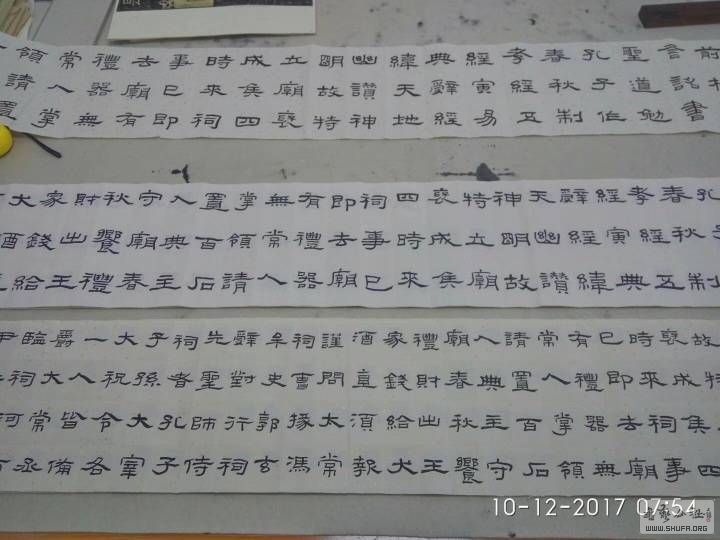 前
言詔書
聖道勉
孔子作
春秋制
孝經五
經寅易
典辭經
緯天地
幽讚神
明故特
立廟褒
成侯四
時來祠
事已即
去廟有
禮器無
常人掌
領請置
孔子制
春秋五
孝經典
經寅緯
辭經讚
天幽故
神明廟
特立侯
褒成來
四時已
祠事廟
即去器
有禮人
無常請
掌領石
置百主
入典春
守廟禮
秋饗王
財出給
家錢
大酒
故特立廟
褒成侯四
時來祠事
已即去廟
有禮器無
常人掌領
請置百石
入典主守
廟春秋饗
禮財出王
家錢給犬
酒直須報
謹問太常
祠曹掾馮
牟史郭玄
辭對行祠
先聖師侍
祠者孔子
子孫大宰
大祝令各
一人皆備
爵大常丞
臨祠河
10-12-2017 07:54
WWW.SHUFA.ORG